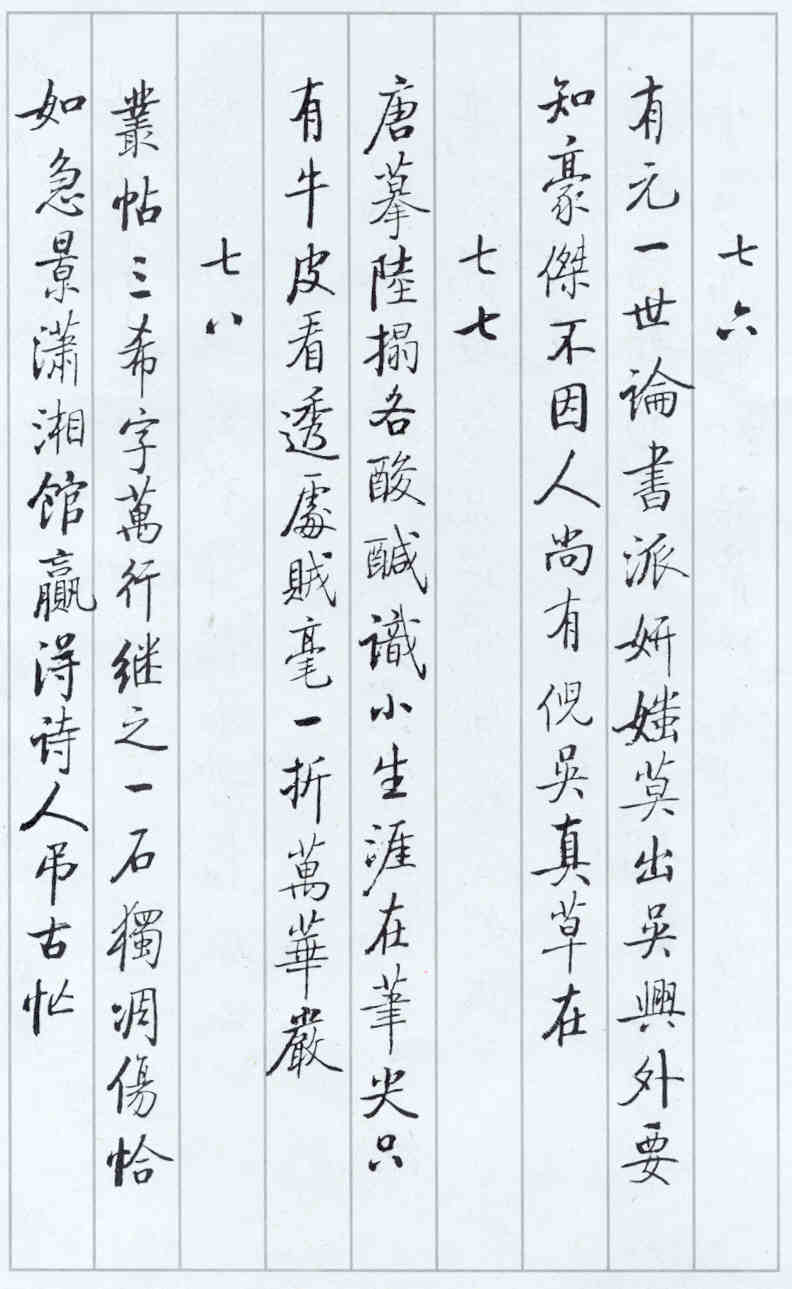 七六
有元一世論書派妍媸莫出吳興外要
知豪傑不因人尚有倪吳真草在
七七
唐摹陸搨各酸醎識小生涯在筆尖只
有牛皮看透處賊毫一折萬華嚴
七八
叢帖三希字萬行継之一石獨凋傷恰
如急景瀟湘館贏得诗人吊古忙